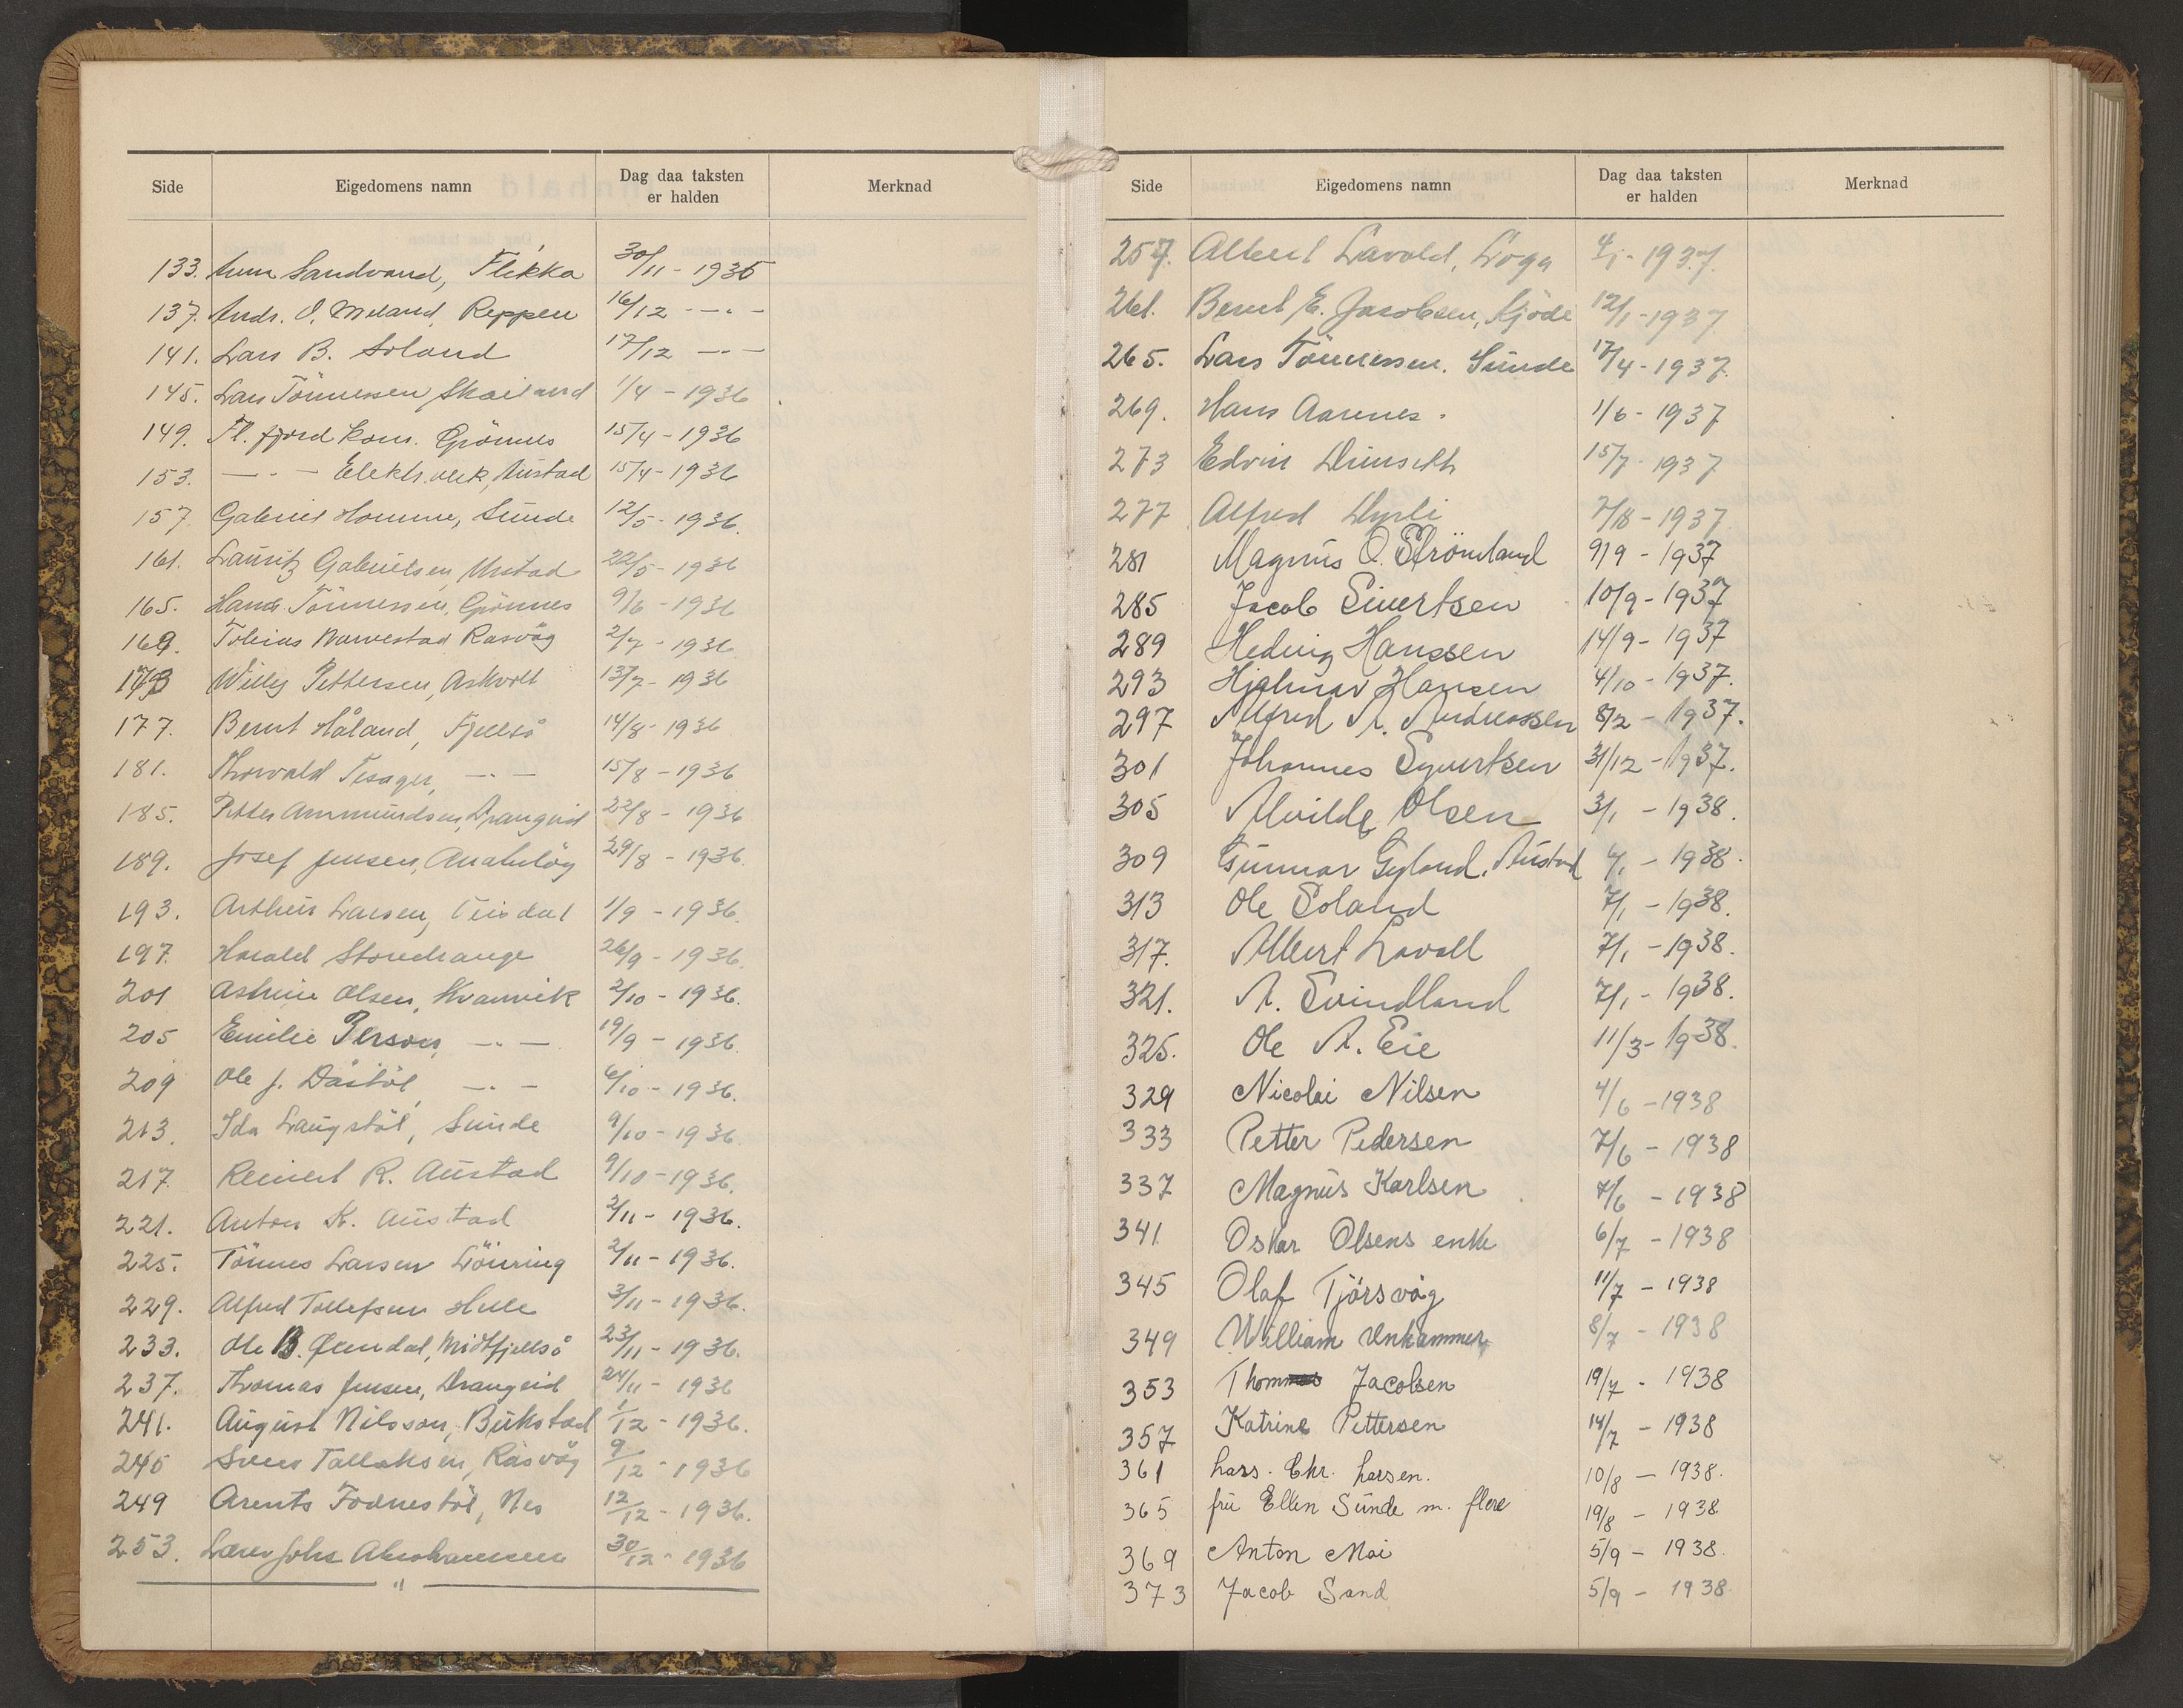 Side Eigedomens namn Dag daa taksten er halden Merknad
133. Sandvand, Flikka 30/11 - 1935
137. Andr. O. Meland, Reppen 16/12 - " -
141. Lars B. Soland 17/12 - " -
145. Lars Tönnessen Skailand 1/4 - 1936
149. Fl. fjord kom. Grönnes 15/4 - 1936
153. - " - Elektr.verk, Austad 15/4 - 1936
157 Gabriel Homme, Sunde 12/5 - 1936.
161. Lauritz Gabrielsen, Austad 22/5 - 1936
165. Hans Tönnessen, Grönnes 9/6 - 1936
169. Tobias Rasvåg 2/7 - 1936
173 Willy Pettersen, Askvoll 13/7 - 1936
177. Bernt Håland, Fjellså 14/8 - 1936
181. Thorvald Tesager, - " - 15/8 - 1936
185. Petter Ammundsen, Drangeid 22/8 - 1936
189. Josef Jensen, Anabelög 29/8 - 1936.
193. Arthur Larsen, 1/9 - 1936.
197. Harald Storedrange 26/9 - 1936.
201 Astrine Olsen, Kvanvik 2/10 - 1936.
205 Emilie Person, - " - 19/9 - 1936.
209 Ole J. Dåstöl, - " - 6/10 - 1936.
213. Ida Laugstöl, Sunde 9/10 - 1936.
217. Reinert R. Austad 9/10 - 1936.
221. Anton K. Austad 2/11 - 1936.
225. Tönnes Larsen Löining 2/11 - 1936.
229. Alfred Tollefsen Helle 3/11 - 1936.
233. Ole B. Qvindal, Midtfjellså 23/11 - 1936.
237. Thomas Jensen, Drangeid 24/11 - 1936
241. August Nilsson, Bukstad 1/12 - 1936.
245 Sven Tallaksen, Rasvåg 9/12 - 1936
249 Arents Fodnestöl, Nes 12/12 - 1936.
253. Lærer Johs Abrahamsen 30/12 - 1936
"
Side Eigedomens namn Dag daa taksten er halden Merknad
257. Albert Lavold, Loga 4/1 - 1937.
261. Bernt E. Jacobsen, Kjöde 12/1 - 1937
265. Lars Tönnessen. Sunde 17/4 - 1937.
269. Hans Aarenes. 1/6 - 1937
273 Edvin Dunseth 15/7 - 1937
277 Alfred Dyrli 7/8 - 1937
281 Magnus O. Strömland 9/9 - 1937
285 Jacob Sivertsen 10/9 - 1937
289 Hedvig Hanssen 14/9 - 1937
293 Hjalmar Hansen 4/10 - 1937.
297 Alfred A. Andreassen 8/2 - 1937.
301 Johannes Syvertsen 31/12 - 1937.
305 Alvilde Olsen 3/1 - 1938.
309 Gunnar Gyland, Austad 4/1 - 1938.
313 Ole Soland 7/1 - 1938.
317. Albert Lavoll 7/1 - 1938.
321. A. Svindland 7/1 - 1938.
325. Ole A. Eie 11/3 - 1938.
329 Nicolai Nilsen 4/6 - 1938
333 Petter Pedersen 7/6 - 1938
337 Magnus Karlsen 7/6 - 1938
341 Oskar Olsens enke 6/7 - 1938
345 Olaf Tjörsvåg 11/7 - 1938
349 William Unhammer 8/7 - 1938
353 Thom Jacobsen 19/7 - 1938
357 Katrine Pettersen 14/7 - 1938
361 Lars. Chr. Larsen. 10/8 - 1938.
365 fru Ellen Sunde m. flere 19/8 - 1938
369 Anton Moi 5/9 - 1938.
373 Jacob Sand 5/9 - 1938.